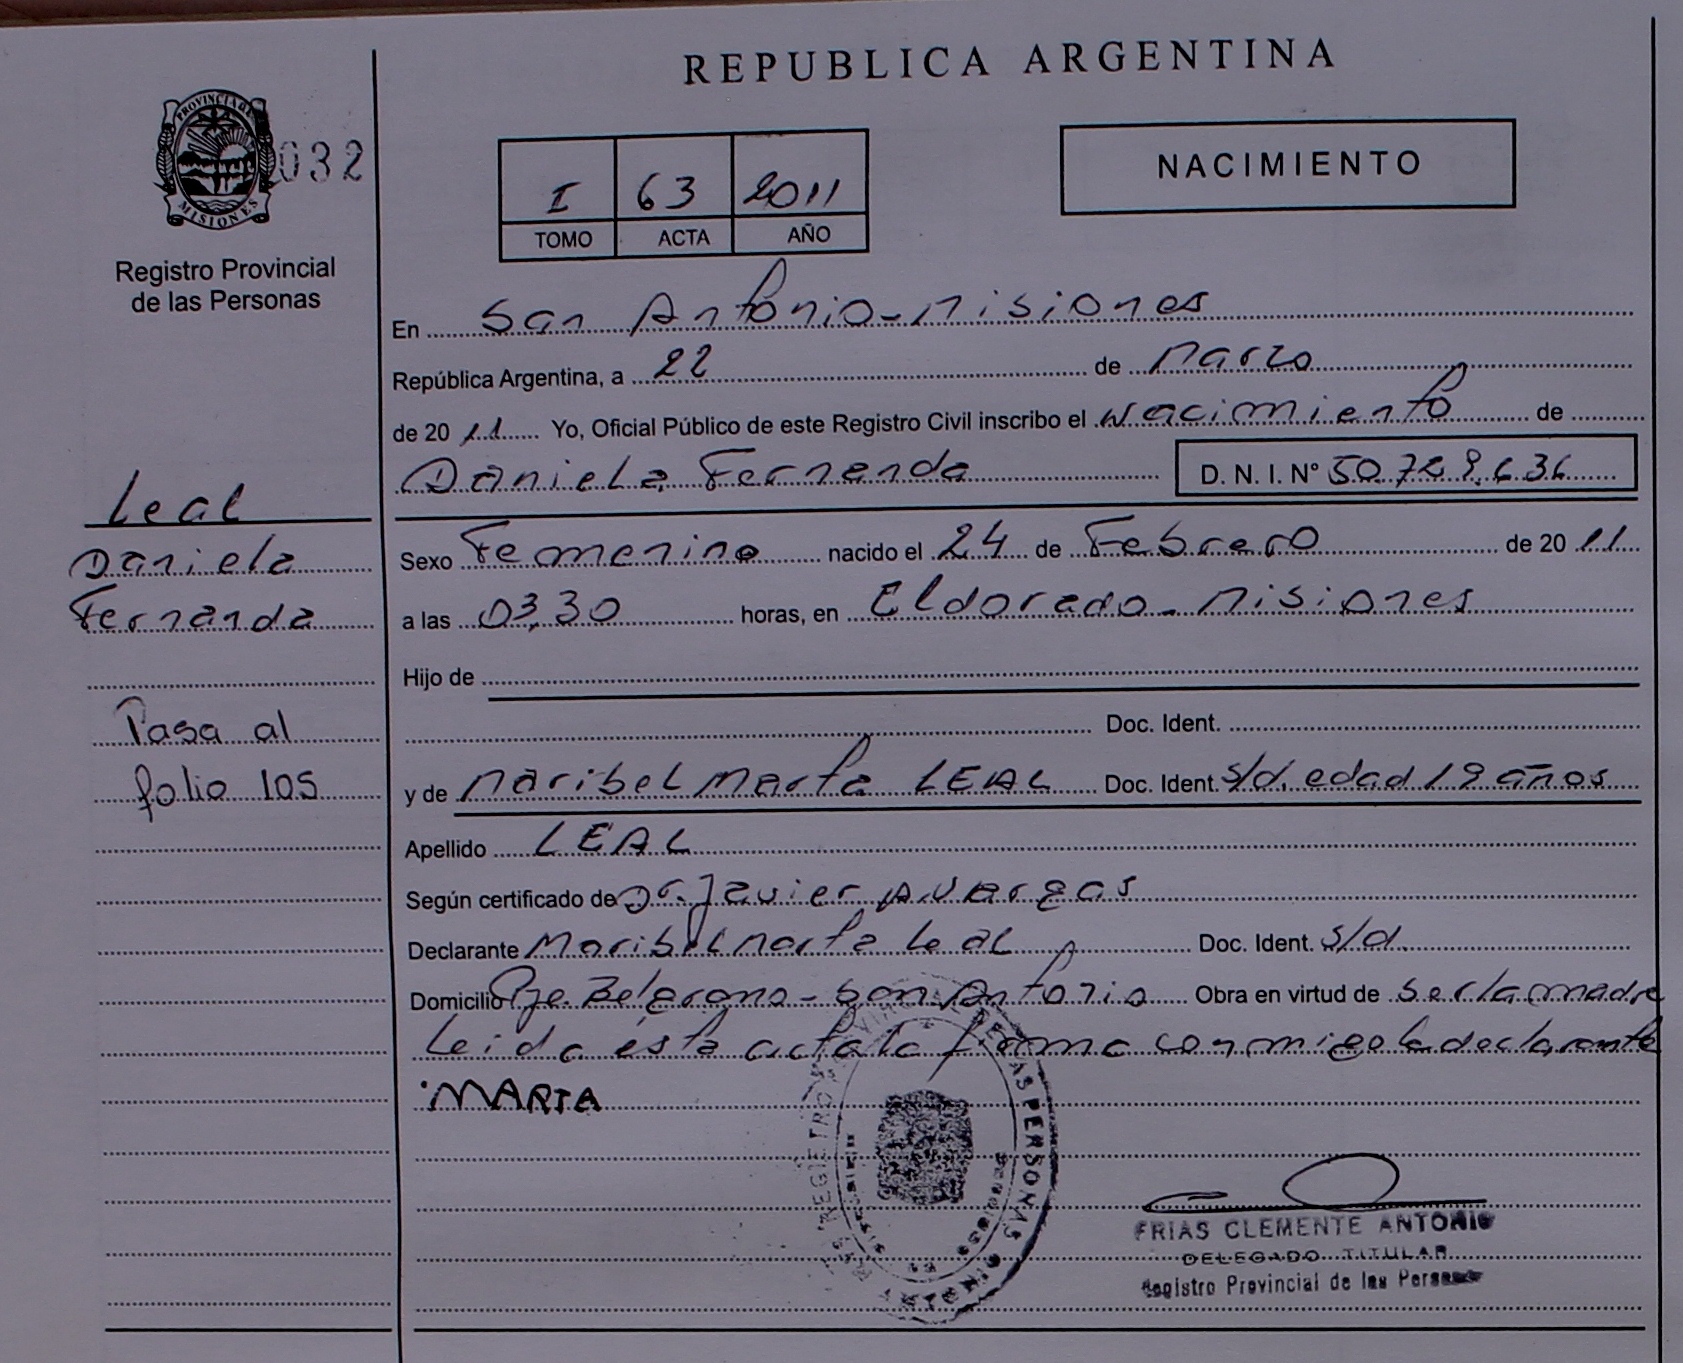 REPUBLICA ARGENTINA
PROVINCIA DE
MISIONES
032
Registro Provincial
de las Personas
I 63 2011
TOMO ACTA AÑO
NACIMIENTO
En San Antonio - Misiones
República Argentina, a 22 de Marzo
de 2011 Yo, Oficial Público de este Registro Civil inscribo el Nacimiento de
Daniela Fernanda D. N. I. N° 50.729.636
Leal
Daniela
Fernanda
Pasa al
folio 105
Sexo Femenino nacido el 24 de Febrero de 2011
a las 03,30 horas, en Eldorado - Misiones
Hijo de
Doc. Ident.
y de Maribel Marta LEAL Doc. Ident. s/d. edad 19 años
Apellido LEAL
Según certificado de Dr. Javier A. Vargas
Declarante Maribel Marta Leal Doc. Ident. s/d
Domicilio Pje. Belgrano - San Antonio Obra en virtud de ser la madre
Leida ésta acta la firma conmigo la declarante
MARTA
REGISTRO PROVINCIAL DE LAS PERSONAS
FRIAS CLEMENTE ANTONIO
DELEGADO TITULAR
Registro Provincial de las Personas